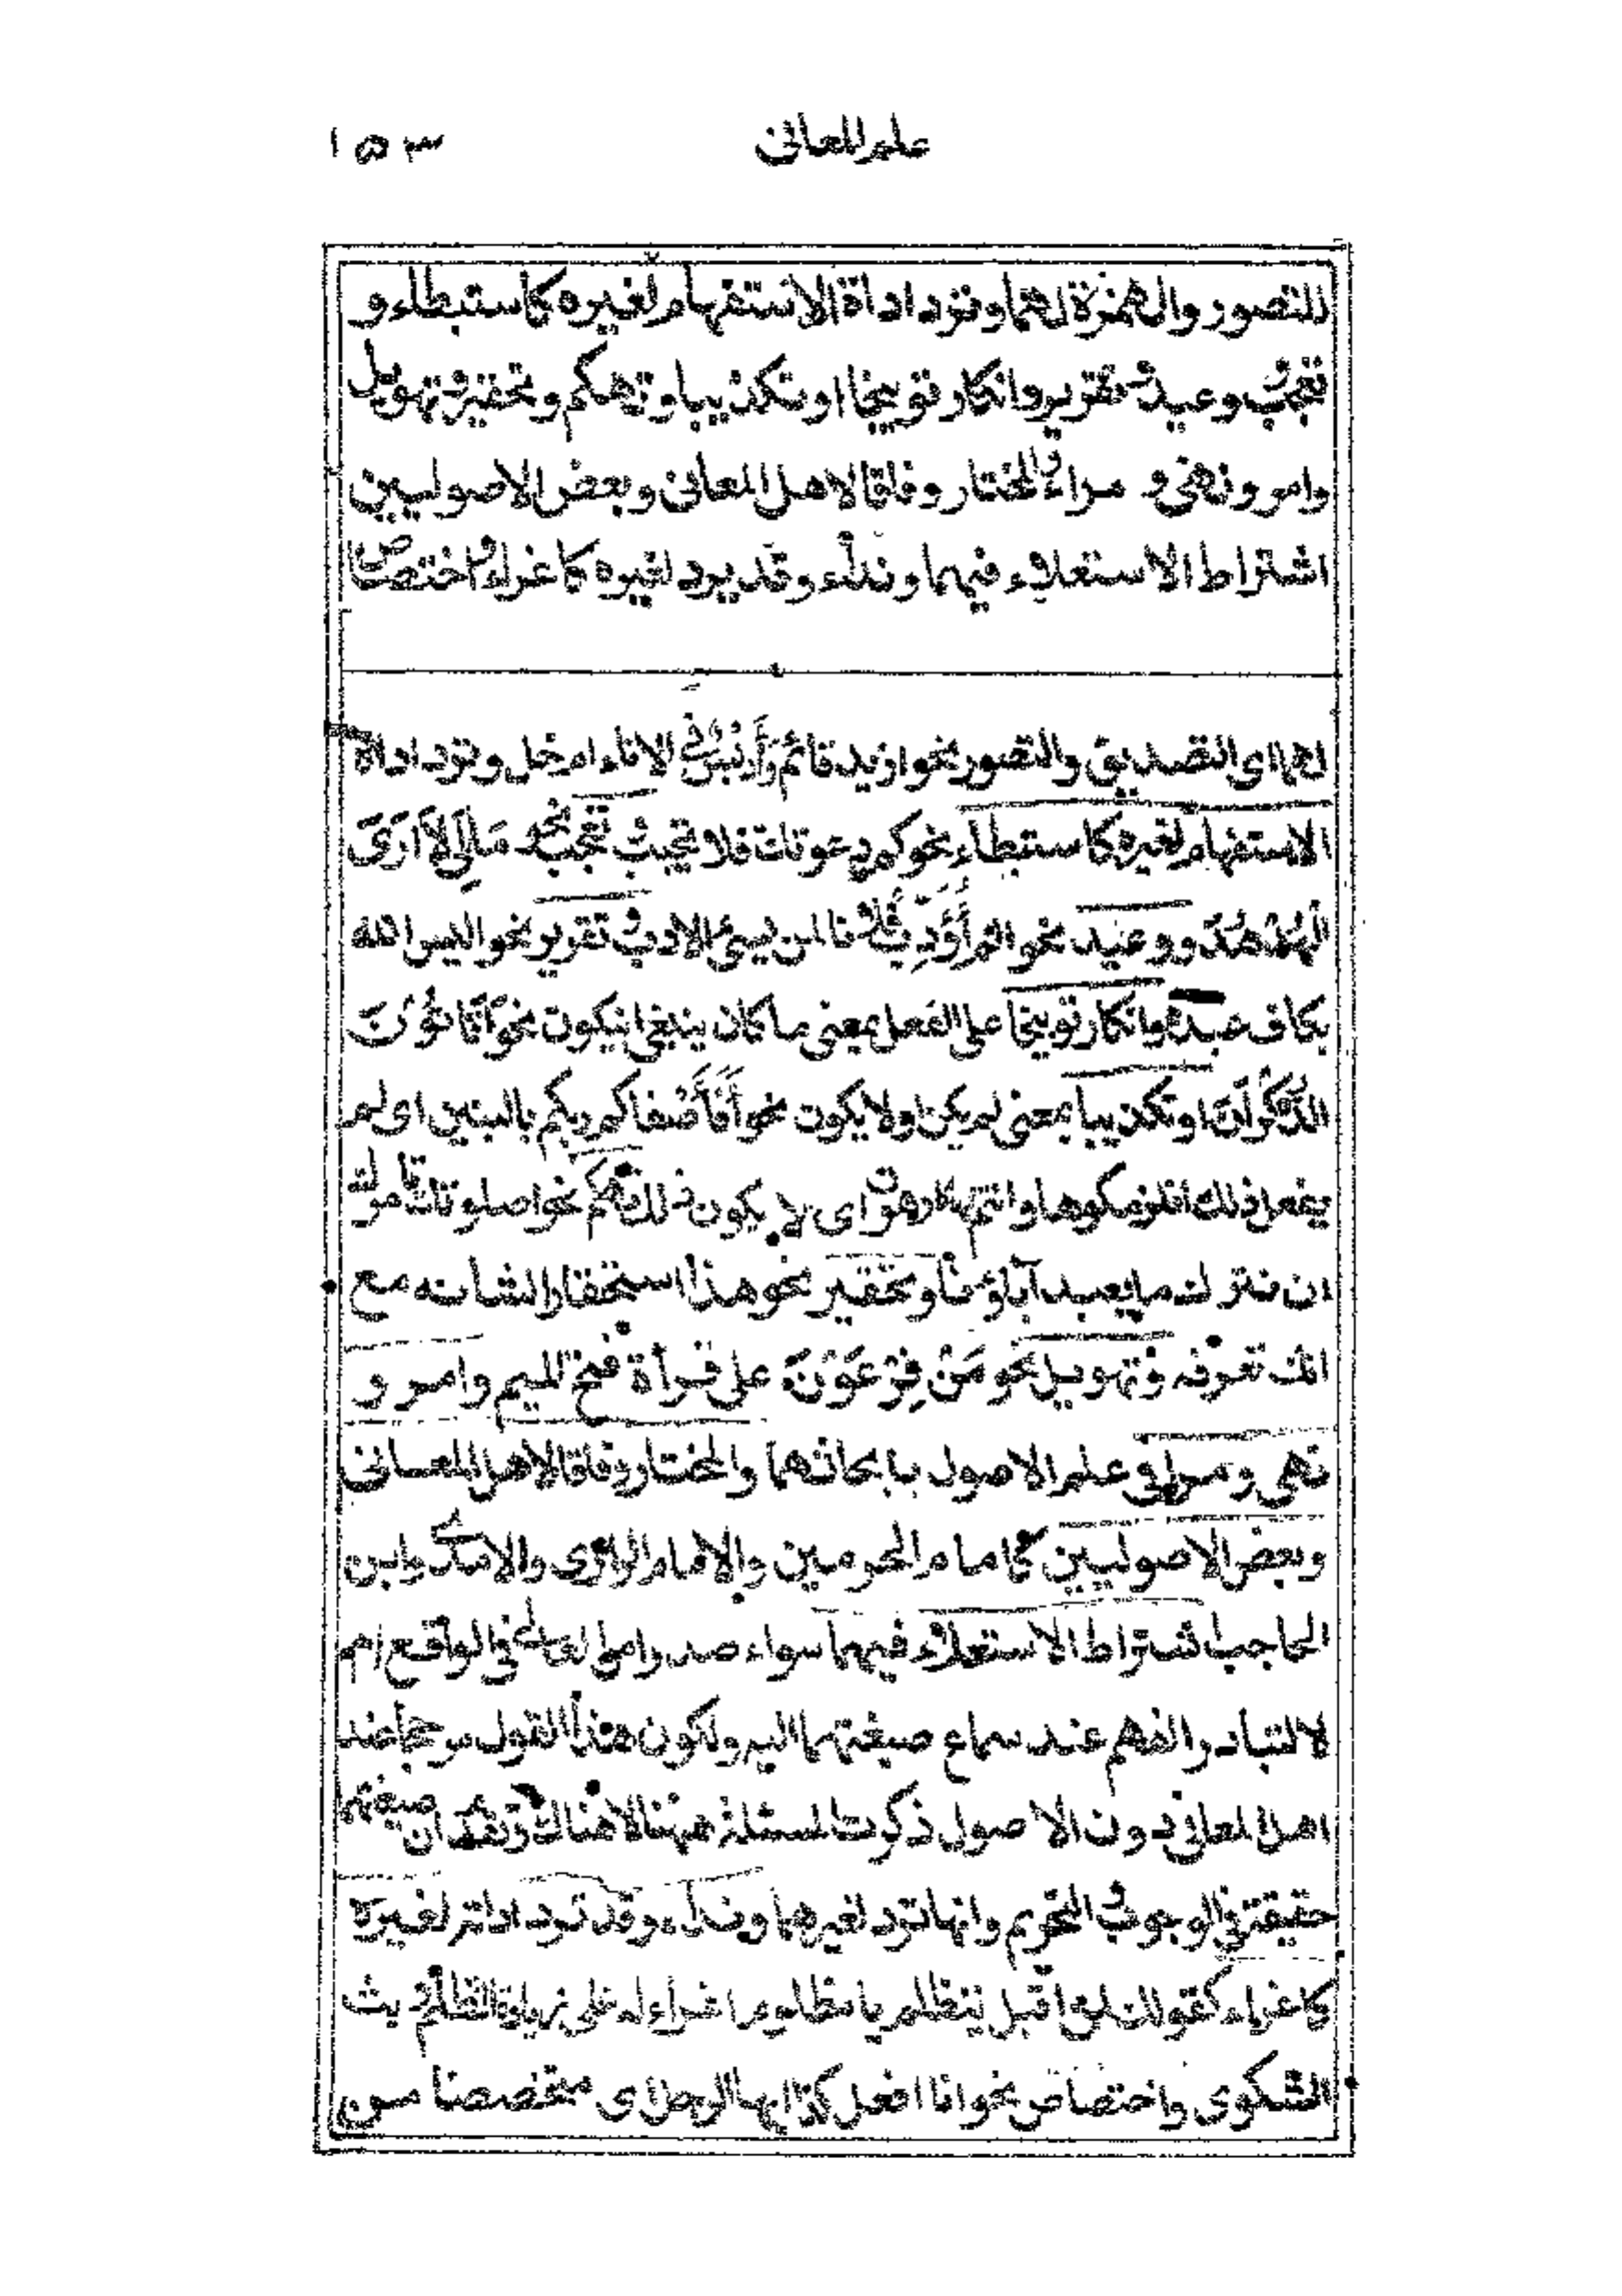 علم المعانى
١٥٣
للتصور والهمزة لهما وترد اداة الاستفهام لغيره كاستبطاء و
تعجب ووعيد وتقرير وانكار توبيخا او تكذيبا وتهكم وتحقير وتهويل
وامر ونهى و مرا والمختار وفاقا لاهل المعانى وبعض الاصوليين
اشتراط الاستعلاء فيهما ونداء وقد يرد لغيره كاغراء واختصاص
لهما اى التصديق والتصور نحو ازيد قائم وأدبس فى الاناء ام خل وترد اداة
الاستفهام لغيره كاستبطاء نحو كم دعوتك فلا تجيب وتعجب نحو مَالِىَ لَا اَرَى
الْهُدْهُدَ ووعيد نحو الم أُؤَدِّبْ فُلَانا لمن يسئ الادب وتقرير نحو اليس الله
بكاف عبده وانكار توبيخا على الفعل بمعنى ما كان ينبغى ان يكون نحو أَتَأْتُوْنَ
الذُّكْرَانَ او تكذيبا بمعنى لم يكن او لا يكون نحو أَفَأَصْفَاكم ربكم بالبنين اى لم
يفعل ذلك انلزمكموها وانتم لها كارهون اى لا يكون ذلك وتهكم نحو اصلوتك تامرك
ان نترك ما يعبد آباؤنا وتحقير نحو من هذا استحقارا لشانه مع
انك تعرفه وتهويل نحو مَنْ فِرْعَوْنَ على قرأة فتح الميم وامر و
نهى ومرا فى علم الاصول بابحاثهما والمختار وفاقا لاهل المعانى
وبعض الاصوليين كامام الحرمين والامام الرازى والامدى وابن
الحاجب اشتراط الاستعلاء فيهما سواء صدرا من العالى فى الواقع ام
لا لتبادر الفهم عند سماع صيغتهما اليه ولكون هذا القول مرجحا عند
اهل المعانى دون الاصول ذكرت المسئلة ههنا لا هناك وتقدم ان صيغتهما
حقيقة فى الوجوب والتحريم وانها ترد لغيرهما ونداء وقد ترد اداته لغيره
كاغراء كقولك لمن اقبل يتظلم يا مظلوم اغراء له على زيادة التظلم وبث
الشكوى واختصاص نحو انا افعل كذا ايها الرجل اى متخصصا من